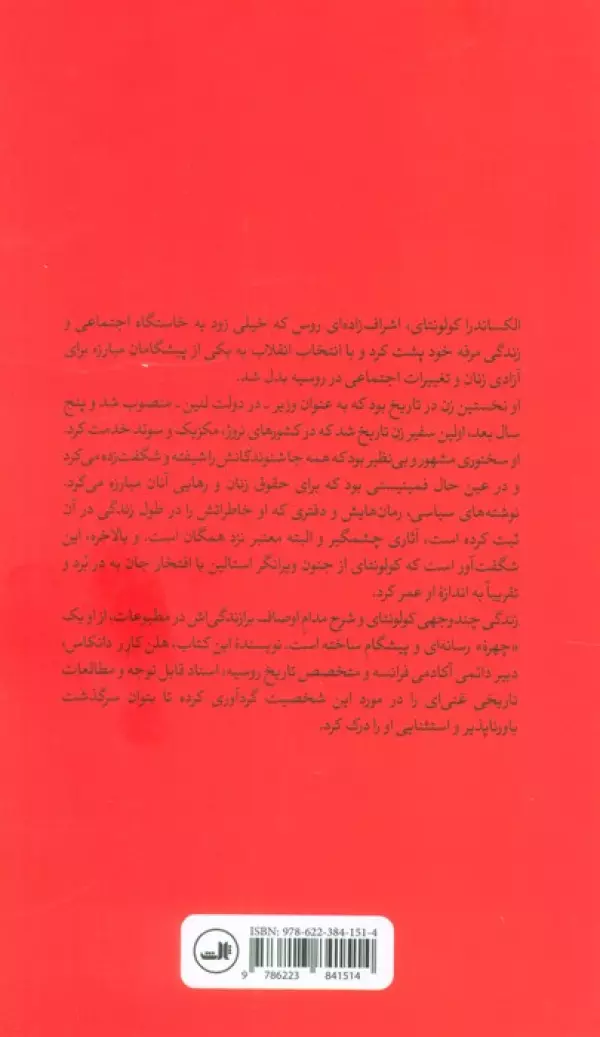 الکساندرا کولونتای، اشراف‌زاده‌ای روس که خیلی زود به خاستگاه اجتماعی و
زندگی مرفه خود پشت کرد و با انتخاب انقلاب به یکی از پیشگامان مبارزه برای
آزادی زنان و تغییرات اجتماعی در روسیه بدل شد.
او نخستین زن در تاریخ بود که به عنوان وزیر ـ در دولت لنین ـ منصوب شد و پنج
سال بعد، اولین سفیر زن تاریخ شد که در کشورهای نروژ، مکزیک و سوئد خدمت کرد.
او سخنوری مشهور و بی‌نظیر بود که همه جا شنوندگانش را شیفته و شگفت‌زده می‌کرد
و در عین حال فمینیستی بود که برای حقوق زنان و رهایی آنان مبارزه می‌کرد.
نوشته‌های سیاسی، رمان‌هایش و دفتری که او خاطراتش را در طول زندگی در آن
ثبت کرده است، آثاری چشمگیر و البته معتبر نزد همگان است. و بالاخره، این
شگفت‌آور است که کولونتای از جنون ویرانگر استالین با افتخار جان به در بُرد و
تقریباً به اندازهٔ او عمر کرد.
زندگی چندوجهی کولونتای و شرح مدام اوصاف برازندگی‌اش در مطبوعات، از او یک
«چهرهٔ» رسانه‌ای و پیشگام ساخته است. نویسندهٔ این کتاب، هلن کارر دانکاس،
دبیر دائمی آکادمی فرانسه و متخصص تاریخ روسیه، اسناد قابل توجه و مطالعات
تاریخی غنی‌ای را در مورد این شخصیت گردآوری کرده تا بتوان سرگذشت
باورناپذیر و استثنایی او را درک کرد.
ثالث
ISBN: 978-622-384-151-4
9 786223 841514